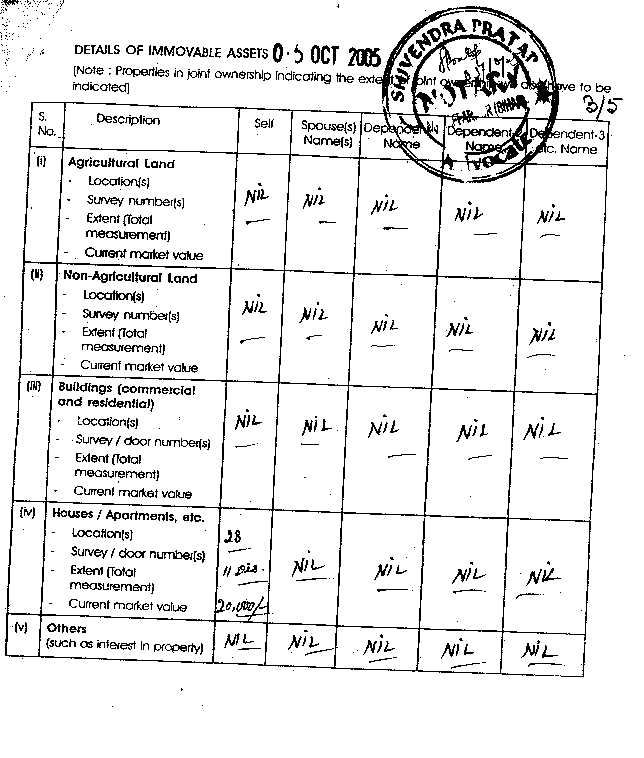 DETAILS OF IMMOVABLE ASSETS 0 5 OCT 2005
SHIVENDRA PRATAP
NOTARY
BIHAR
Advocate
[Note : Properties in joint ownership indicating the extent of joint ownership will also have to be
indicated]
3/5
S. No. Description Self Spouse(s) Name(s) Dependent-1 Name Dependent-2 Name Dependent-3 etc. Name
(i) Agricultural Land
- Location(s)
- Survey number(s)
- Extent (Total
measurement)
- Current market value
NIL NIL NIL NIL NIL
(ii) Non-Agricultural Land
- Location(s)
- Survey number(s)
- Extent (Total
measurement)
- Current market value
NIL NIL NIL NIL NIL
(iii) Buildings (commercial
and residential)
- Location(s)
- Survey / door number(s)
- Extent (Total
measurement)
- Current market value
NIL NIL NIL NIL NIL
(iv) Houses / Apartments, etc.
- Location(s) 28
- Survey / door number(s)
- Extent (Total 11 Dis.
measurement)
- Current market value 20,000/-
NIL NIL NIL NIL
(v) Others
(such as interest in property)
NIL NIL NIL NIL NIL